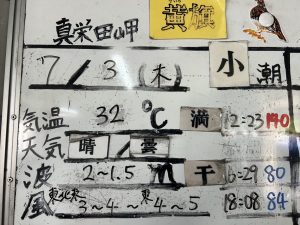 真栄田岬 黄旗
7/3(木) 小潮
気温 32℃ 満 12:23 170
天気 晴/曇
波 2~1.5m 干 16:29 80
風 東北東3~4~東4~5 18:08 84